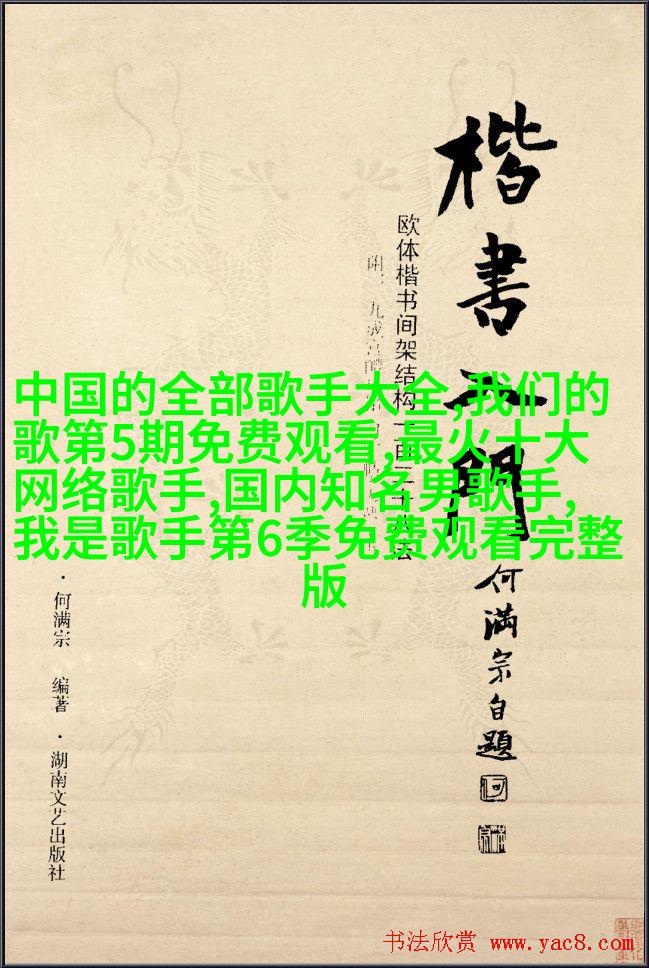 楷書入門
欧体楷书间架结构一百三十八法
何满宗自题
中国的全部歌手大全,我们的
歌第5期免费观看,最火十大
网络歌手,国内知名男歌手,
我是歌手第6季免费观看完整
版
·何满宗 编著·湖南文艺出版社
书法欣赏 www.yac8.com